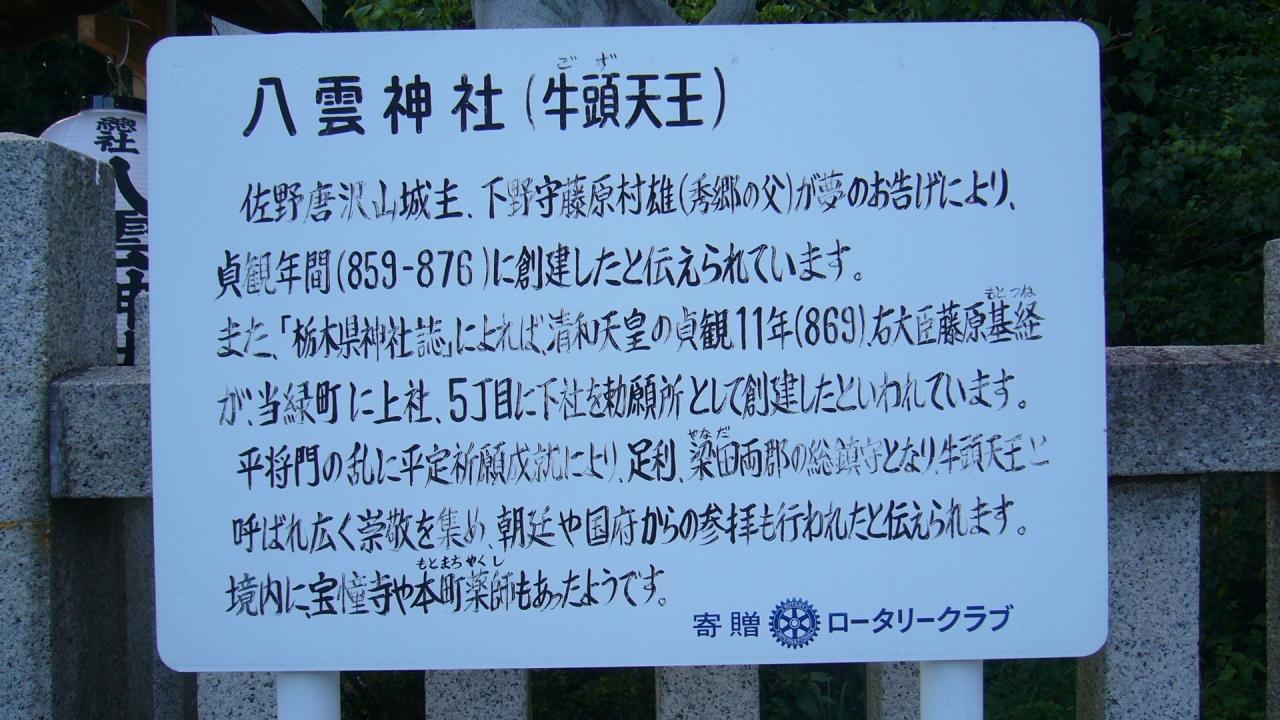 八雲神社(牛頭天王)
ごず
佐野唐沢山城主、下野守藤原村雄(秀郷の父)が夢のお告げにより、
貞観年間(859-876)に創建したと伝えられています。
また、「栃木県神社誌」によれば、清和天皇の貞観11年(869)、右大臣藤原基経
もとつね
が、当緑町に上社、5丁目に下社を勅願所として創建したといわれています。
平将門の乱に平定祈願成就により、足利、梁田両郡の総鎮守となり、牛頭天王と
やなだ
呼ばれ広く崇敬を集め、朝廷や国府からの参拝も行われたと伝えられます。
境内に、宝憧寺や本町薬師もあったようです。
もとまちやくし
寄贈 ロータリークラブ
總社
八雲神社